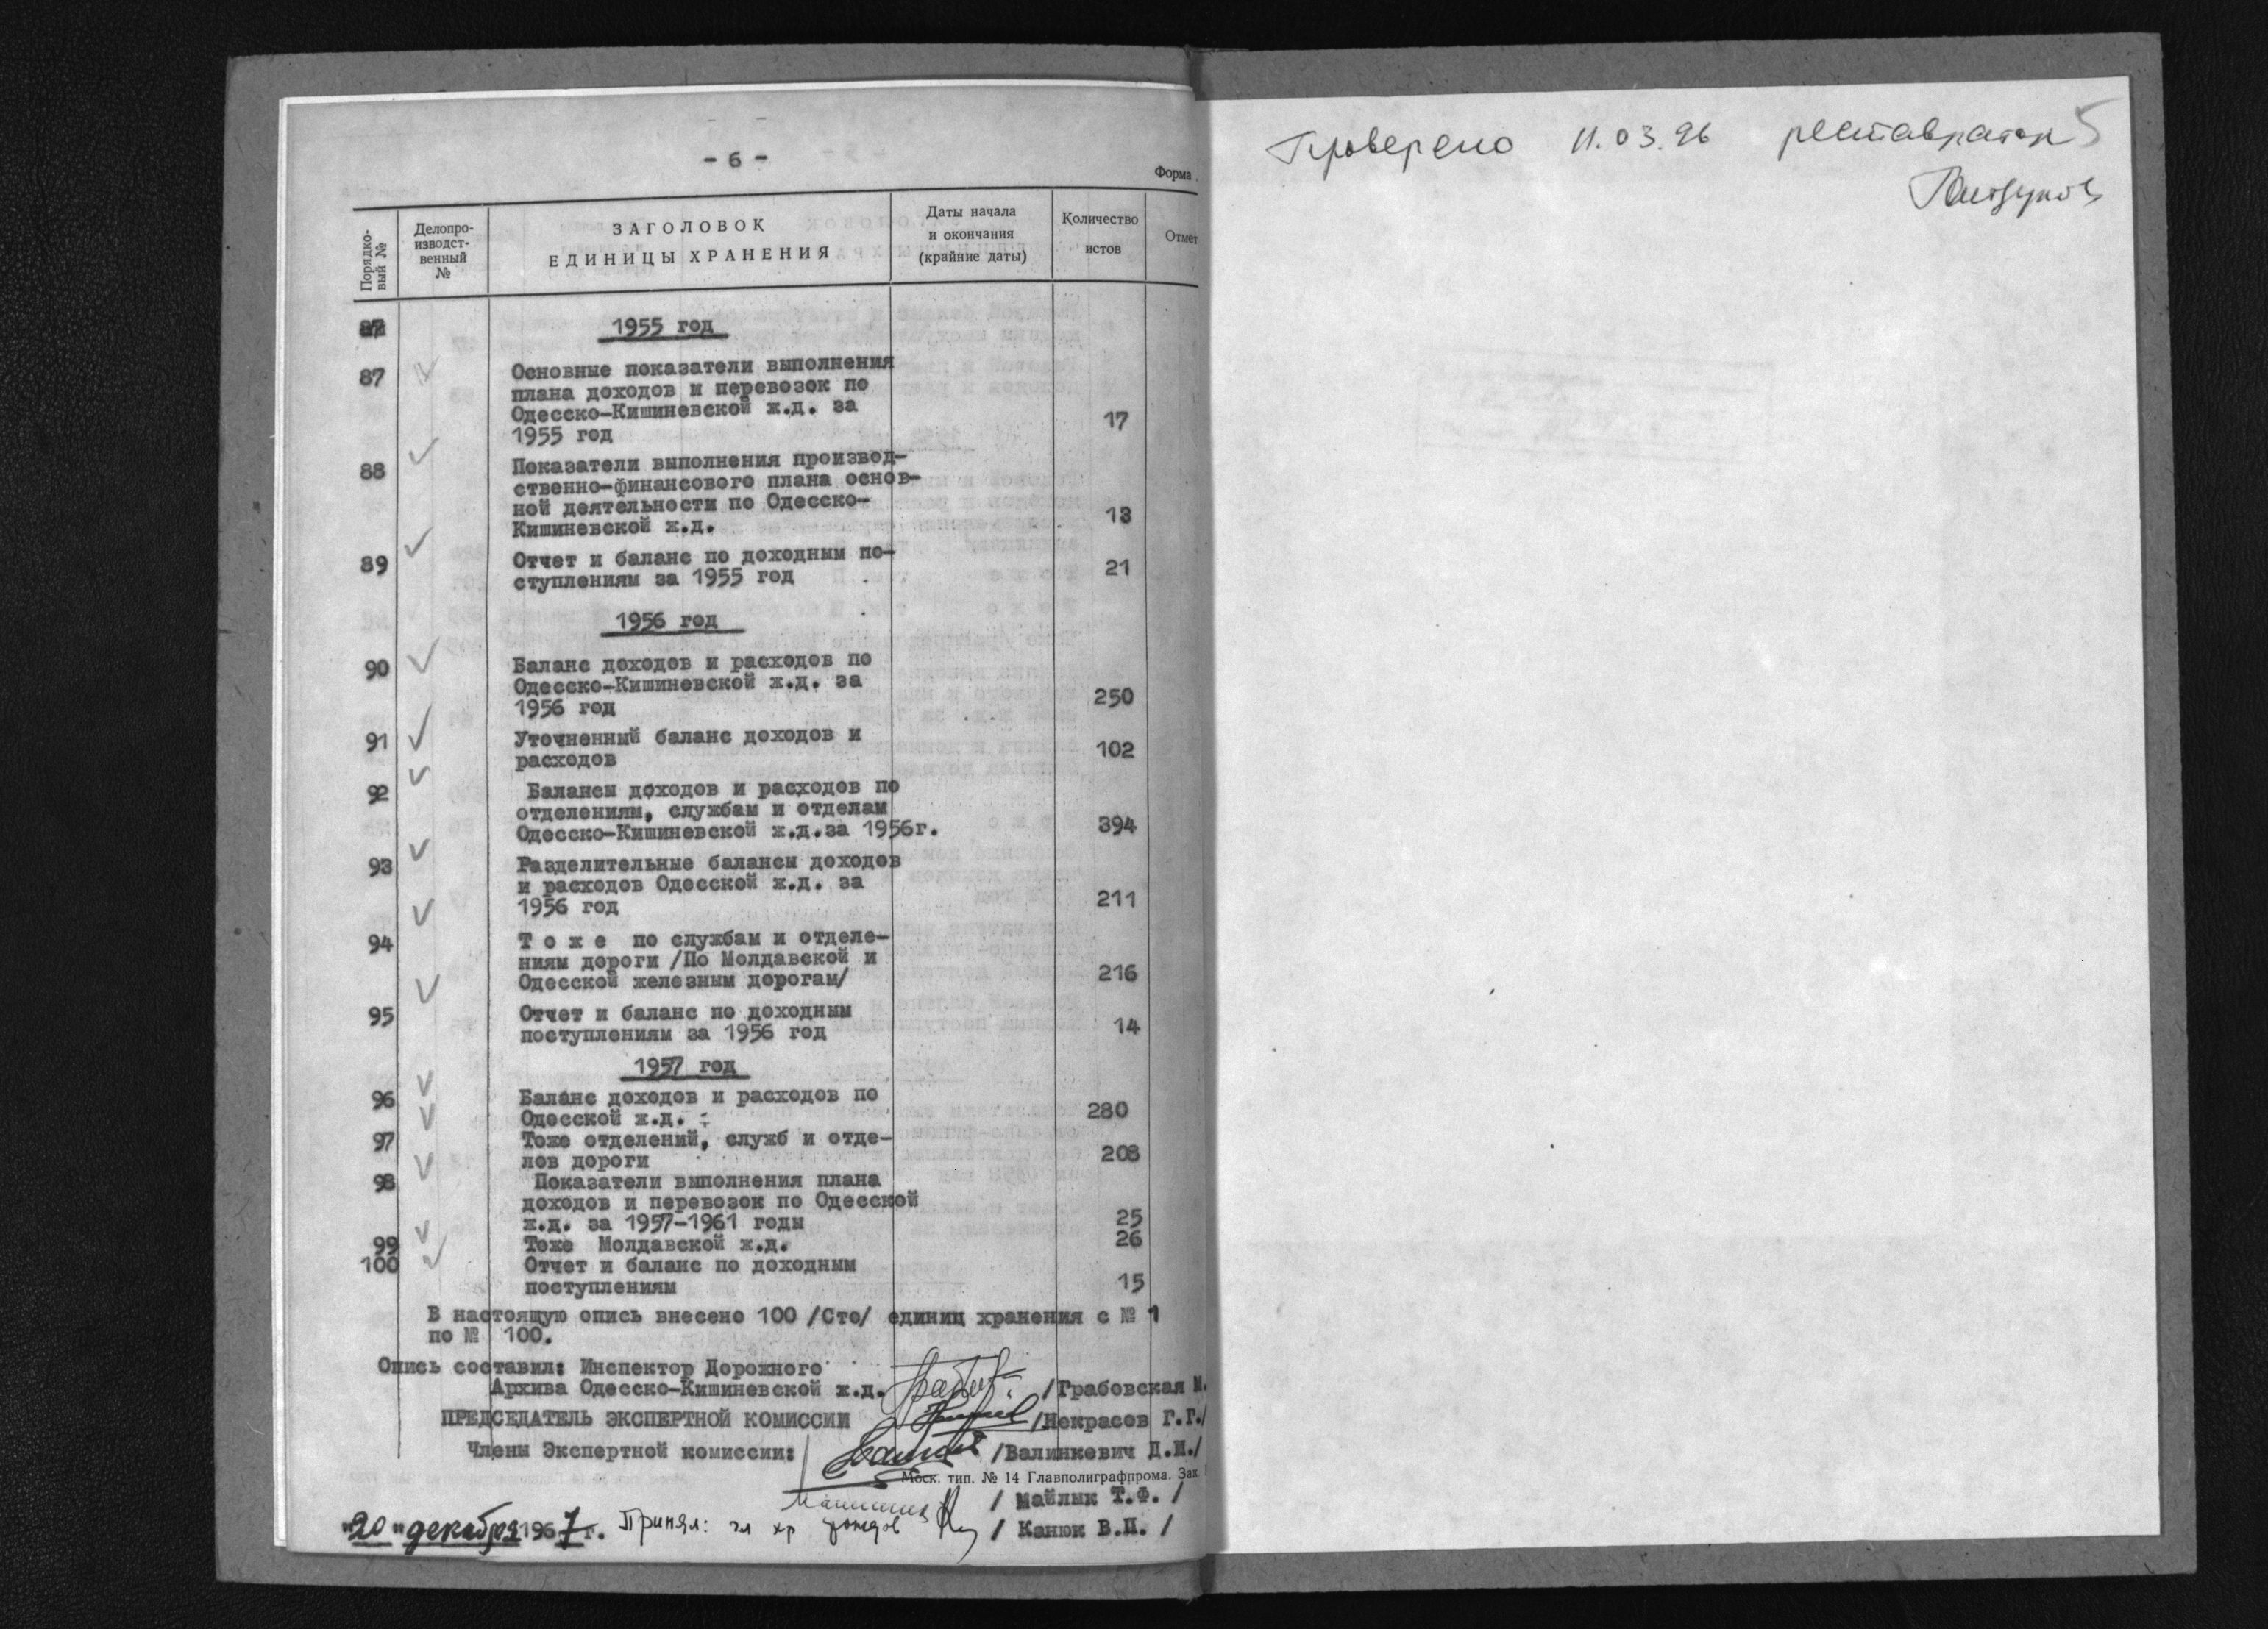 - 6 -
Форма
Порядко-
вый №
Делопро-
изводст-
венный
№
ЗАГОЛОВОК
ЕДИНИЦЫ ХРАНЕНИЯ
Даты начала
и окончания
(крайние даты)
Количество
истов
Отмет
1955 год
87 Основные показатели выполнения
плана доходов и перевозок по
Одесско-Кишиневской ж.д. за
1955 год 17
88 Показатели выполнения производ-
ственно-финансового плана основ-
ной деятельности по Одесско-
Кишиневской ж.д. 13
89 Отчет и баланс по доходным по-
ступлениям за 1955 год 21
1956 год
90 Баланс доходов и расходов по
Одесско-Кишиневской ж.д. за
1956 год 250
91 Уточненный баланс доходов и
расходов 102
92 Балансы доходов и расходов по
отделениям, службам и отделам
Одесско-Кишиневской ж.д.за 1956г. 394
93 Разделительные балансы доходов
и расходов Одесской ж.д. за
1956 год 211
94 Т о ж е по службам и отделе-
ниям дороги /По Молдавской и
Одесской железным дорогам/ 216
95 Отчет и баланс по доходным
поступлениям за 1956 год 14
1957 год
96 Баланс доходов и расходов по
Одесской ж.д. 280
97 Тоже отделений, служб и отде-
лов дороги 208
98 Показатели выполнения плана
доходов и перевозок по Одесской
ж.д. за 1957-1961 годы 25
99 Тоже Молдавской ж.д. 26
100 Отчет и баланс по доходным
поступлениям 15
В настоящую опись внесено 100 /Сто/ единиц хранения с № 1
по № 100.
Опись составил: Инспектор Дорожного
Архива Одесско-Кишиневской ж.д. /Грабовская М.
ПРЕДСЕДАТЕЛЬ ЭКСПЕРТНОЙ КОМИССИИ /Некрасов Г.Г./
Члены Экспертной комиссии: /Валинкевич Д.И./
Моск. тип. № 14 Главполиграфпрома. Зак
/ Майлык Т.Ф. /
"20" декабря 1967 г. Принял: гл хр фондов / Канюк В.П. /
Проверено 11.03.96 реставратор